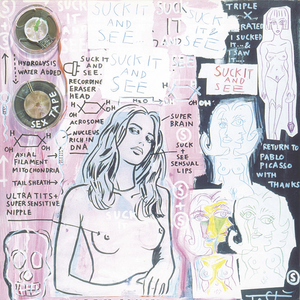 SUCK IT
AND
SEE
SUCK IT
AND
SEE
TRIPLE
X
RATED
I SUCKED
IT...&
SAW
IT...
HYDROLYSIS
WATER ADDED
SUCK IT
AND
SEE.
RECORDING
ERASER
HEAD
SUCK IT
AND
SEE
SUCK IT
AND
SEE
SEX TYPE
H
OH
ACROSOME
NUCLEUS
RICH IN
DNA
SUPER
BRAIN
SUCK
+
SEE
SENSUAL
LIPS
AXIAL
FILAMENT
MITOCHONDRIA
TAIL SHEATH
ULTRA TITS+
SUPER SENSITIVE
NIPPLE
RETURN TO
PABLO
PICASSO
WITH
THANKS
S
S